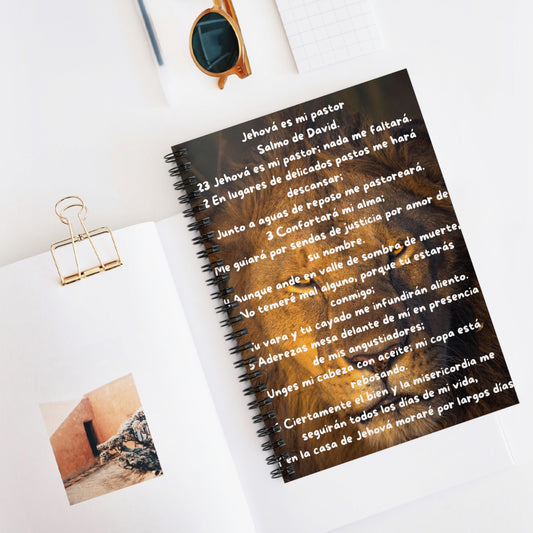 Jehová es mi pastor
Salmo de David.
23 Jehová es mi pastor; nada me faltará.
2 En lugares de delicados pastos me hará
descansar;
Junto a aguas de reposo me pastoreará.
3 Confortará mi alma;
Me guiará por sendas de justicia por amor de
su nombre.
Aunque ande en valle de sombra de muerte,
No temeré mal alguno, porque tú estarás
conmigo;
vara y tu cayado me infundirán aliento.
Aderezas mesa delante de mí en presencia
de mis angustiadores;
Unges mi cabeza con aceite; mi copa está
rebosando.
Ciertamente el bien y la misericordia me
seguirán todos los días de mi vida,
en la casa de Jehová moraré por largos días